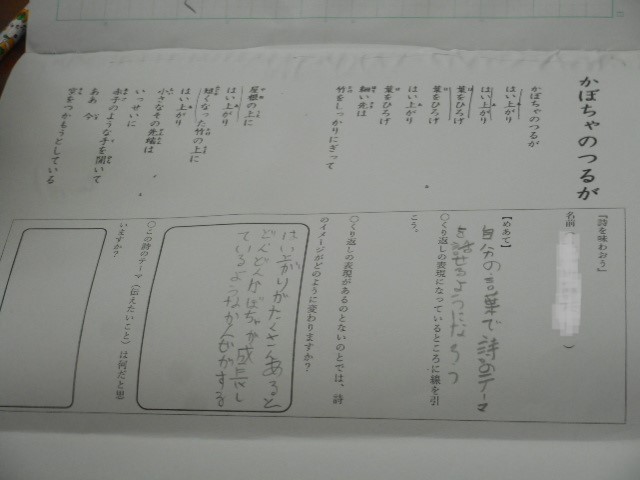 かぼちゃのつるが
かぼちゃのつるが
はい上がり
はい上がり
葉をひろげ
葉をひろげ
はい上がり
葉をひろげ
細い先は
竹をしっかりにぎって
屋根の上に
はい上がり
短くなった竹の上に
はい上がり
小さなその先端は
いっせいに
赤子のような手を開いて
ああ 今
空をつかもうとしている
『詩を味わおう』
名前（ ）
【めあて】
自分の言葉で詩のテーマ
を話せるようになろう
○くり返しの表現になっているところに線を引
こう。
○くり返しの表現があるのとないのとでは、詩
のイメージがどのように変わりますか？
はい上がりがたくさんあると
どんどんかぼちゃが成長し
ているようなかんじがする
○この詩のテーマ（伝えたいこと）は何だと思
いますか？